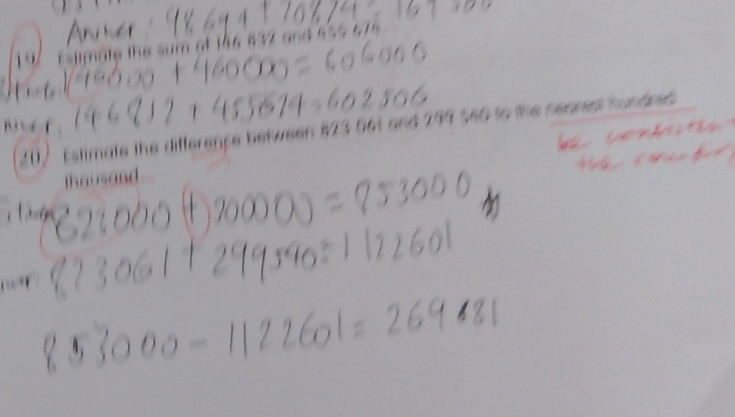 Answer: 98 694 + 70 874 =
19 Estimate the sum of 146 832 and 455 674
146000 + 460000 = 606000
146 832 + 455674 = 602506
20 Estimate the difference between 823 061 and 299 540 to the nearest hundred
thousand
be consistent
823000 + 300000 = 853000
823061 + 299540 = 1122601
853000 - 1122601 = 269